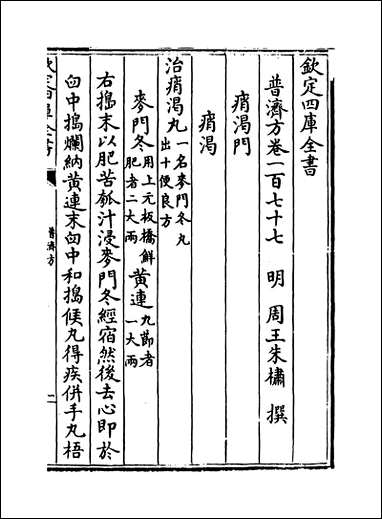 欽定四庫全書
普濟方卷一百七十七
明 周王朱橚 撰
痟渴門
痟渴
治痟渴丸一名麥門冬丸
出十便良方
麥門冬用上元板橋鮮
肥者二大兩黄連九節者
一大兩
右搗末以肥苦瓠汁浸麥門冬經宿然後去心即於
臼中搗爛納黄連末臼中和搗候丸得疾併手丸梧
普濟方
二